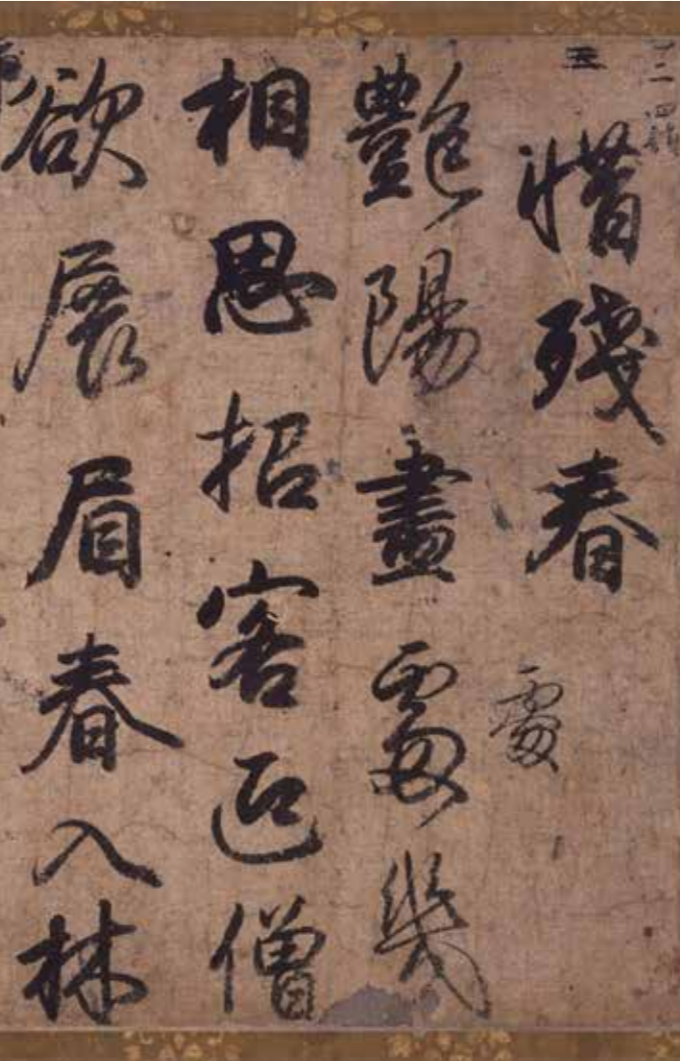 五
惜殘春
處
艷陽盡處幾
相思招客迎僧
欲展眉春入林